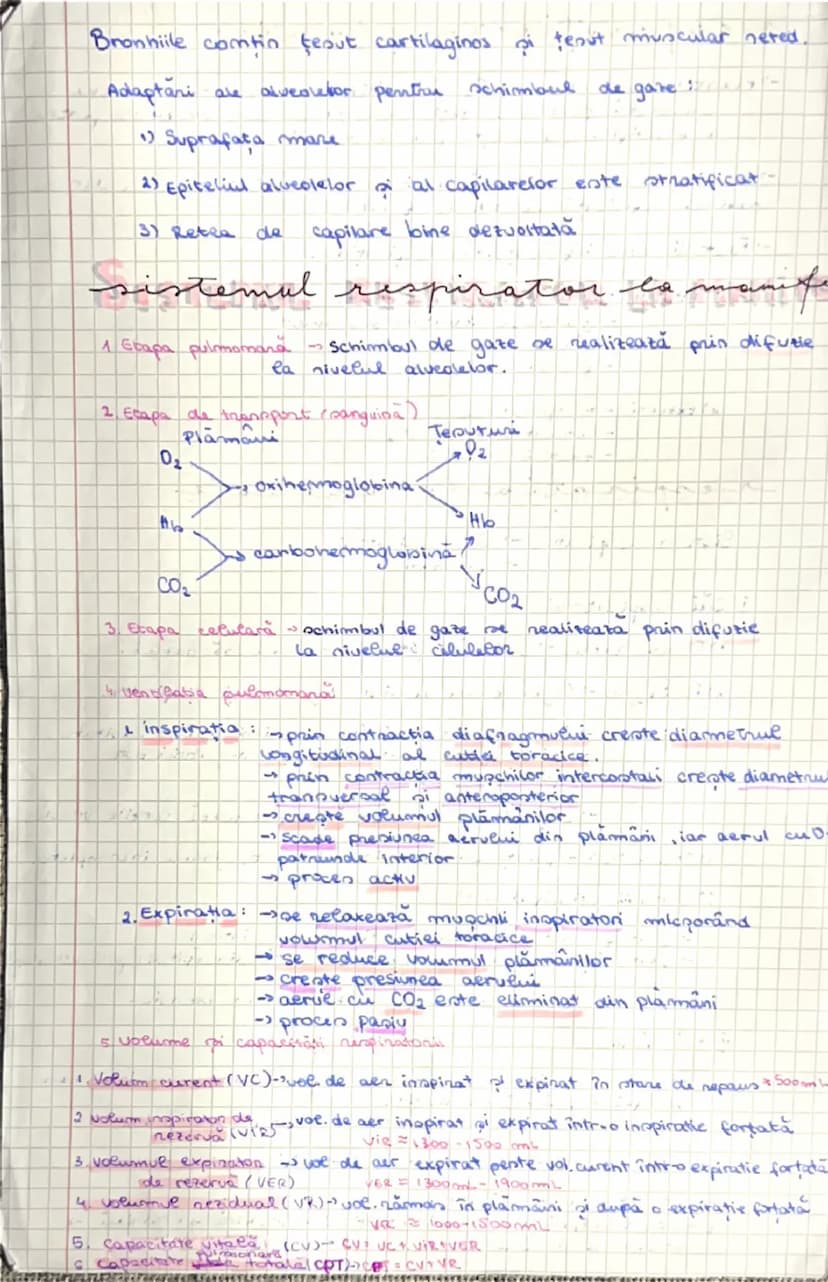 Bronhiile conțin țesut cartilaginos și țesut muscular neted.
Adaptări ale alveolelor pentru schimbul de gaze:
1) Suprafața mare
2) Epiteliul alveolelor și al capilarelor este stratificat
3) Retea de capilare bine dezvoltată
sistemul respirator la mamife
1. Etapa pulmonară → Schimbul de gaze se realizează prin difuzie
la nivelul alveolelor.
2. Etapa de transport (sanguină)
Plămâni Țesuturi
O2 O2
→ oxihemoglobina
Hb Hb
→ carbohemoglobină
CO2 CO2
3. Etapa celulară → schimbul de gaze se realizează prin difuzie
la nivelul celulelor
4. Ventilația pulmonară
1. inspirația: → prin contracția diafragmului crește diametrul
longitudinal al cutiei toracice.
→ prin contracția mușchilor intercostali crește diametru
transversal și anteroposterior
→ crește volumul plămânilor
→ scade presiunea aerului din plămâni, iar aerul cu O
patrunde interior
→ proces activ
2. Expirația: → se relaxează mușchii inspiratori micșorând
volumul cutiei toracice
→ se reduce volumul plămânilor
→ crește presiunea aerului
→ aerul cu CO2 este eliminat din plămâni
→ proces pasiv
5. Volume și capacități respiratorii
1. Volum curent (VC) → vol. de aer inspirat și expirat în stare de repaus ≈ 500 mL
2. volum inspirator de → vol. de aer inspirat și expirat într-o inspiratie forțată
rezervă (VIR)
VIR ≈ 1300 - 1500 mL
3. volumul expirator → vol de aer expirat peste vol. curent într-o expiratie forțată
de rezervă (VER) VER = 1300mL - 1900mL
4. volumul rezidual (VR) → vol. rămas în plămâni și după o expirație forțată
VR ≈ 1000-1500mL
5. Capacitate vitală (CV) → CV = VC + VIR + VER
6 Capacitate pulmonară totală (CPT) → CPT = CV + VR